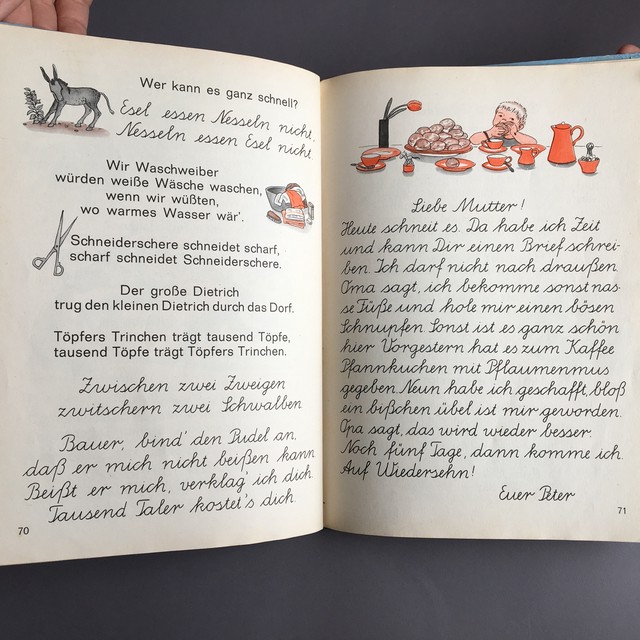 Wer kann es ganz schnell?
Esel essen Nesseln nicht,
Nesseln essen Esel nicht.
Wir Waschweiber
würden weiße Wäsche waschen,
wenn wir wüßten,
wo warmes Wasser wär'.
Schneiderschere schneidet scharf,
scharf schneidet Schneiderschere.
Der große Dietrich
trug den kleinen Dietrich durch das Dorf.
Töpfers Trinchen trägt tausend Töpfe,
tausend Töpfe trägt Töpfers Trinchen.
Zwischen zwei Zweigen
zwitschern zwei Schwalben
Bauer, bind' den Pudel an,
daß er mich nicht beißen kann
Beißt er mich, verklag' ich dich
Tausend Taler kostet's dich.
70
Liebe Mutter!
Heute schneit es. Da habe ich Zeit
und kann Dir einen Brief schrei-
ben. Ich darf nicht nach draußen.
Oma sagt, ich bekomme sonst nas-
se Füße und hole mir einen bösen
Schnupfen. Sonst ist es ganz schön
hier. Vorgestern hat es zum Kaffee
Pfannkuchen mit Pflaumenmus
gegeben. Neun habe ich geschafft, bloß
ein bißchen übel ist mir geworden.
Opa sagt, das wird wieder besser.
Noch fünf Tage, dann komme ich.
Auf Wiedersehn!
Euer Peter
71